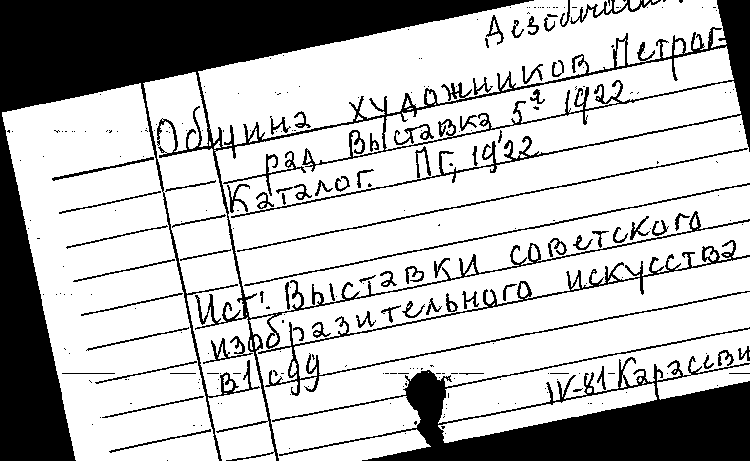 Община художников. Петрог-
рад. Выставка, 5я 1922.
Каталог. ПГ, 1922
Ист: Выставки советского
изобразительного искусства
в1
IV-81 Карасеви